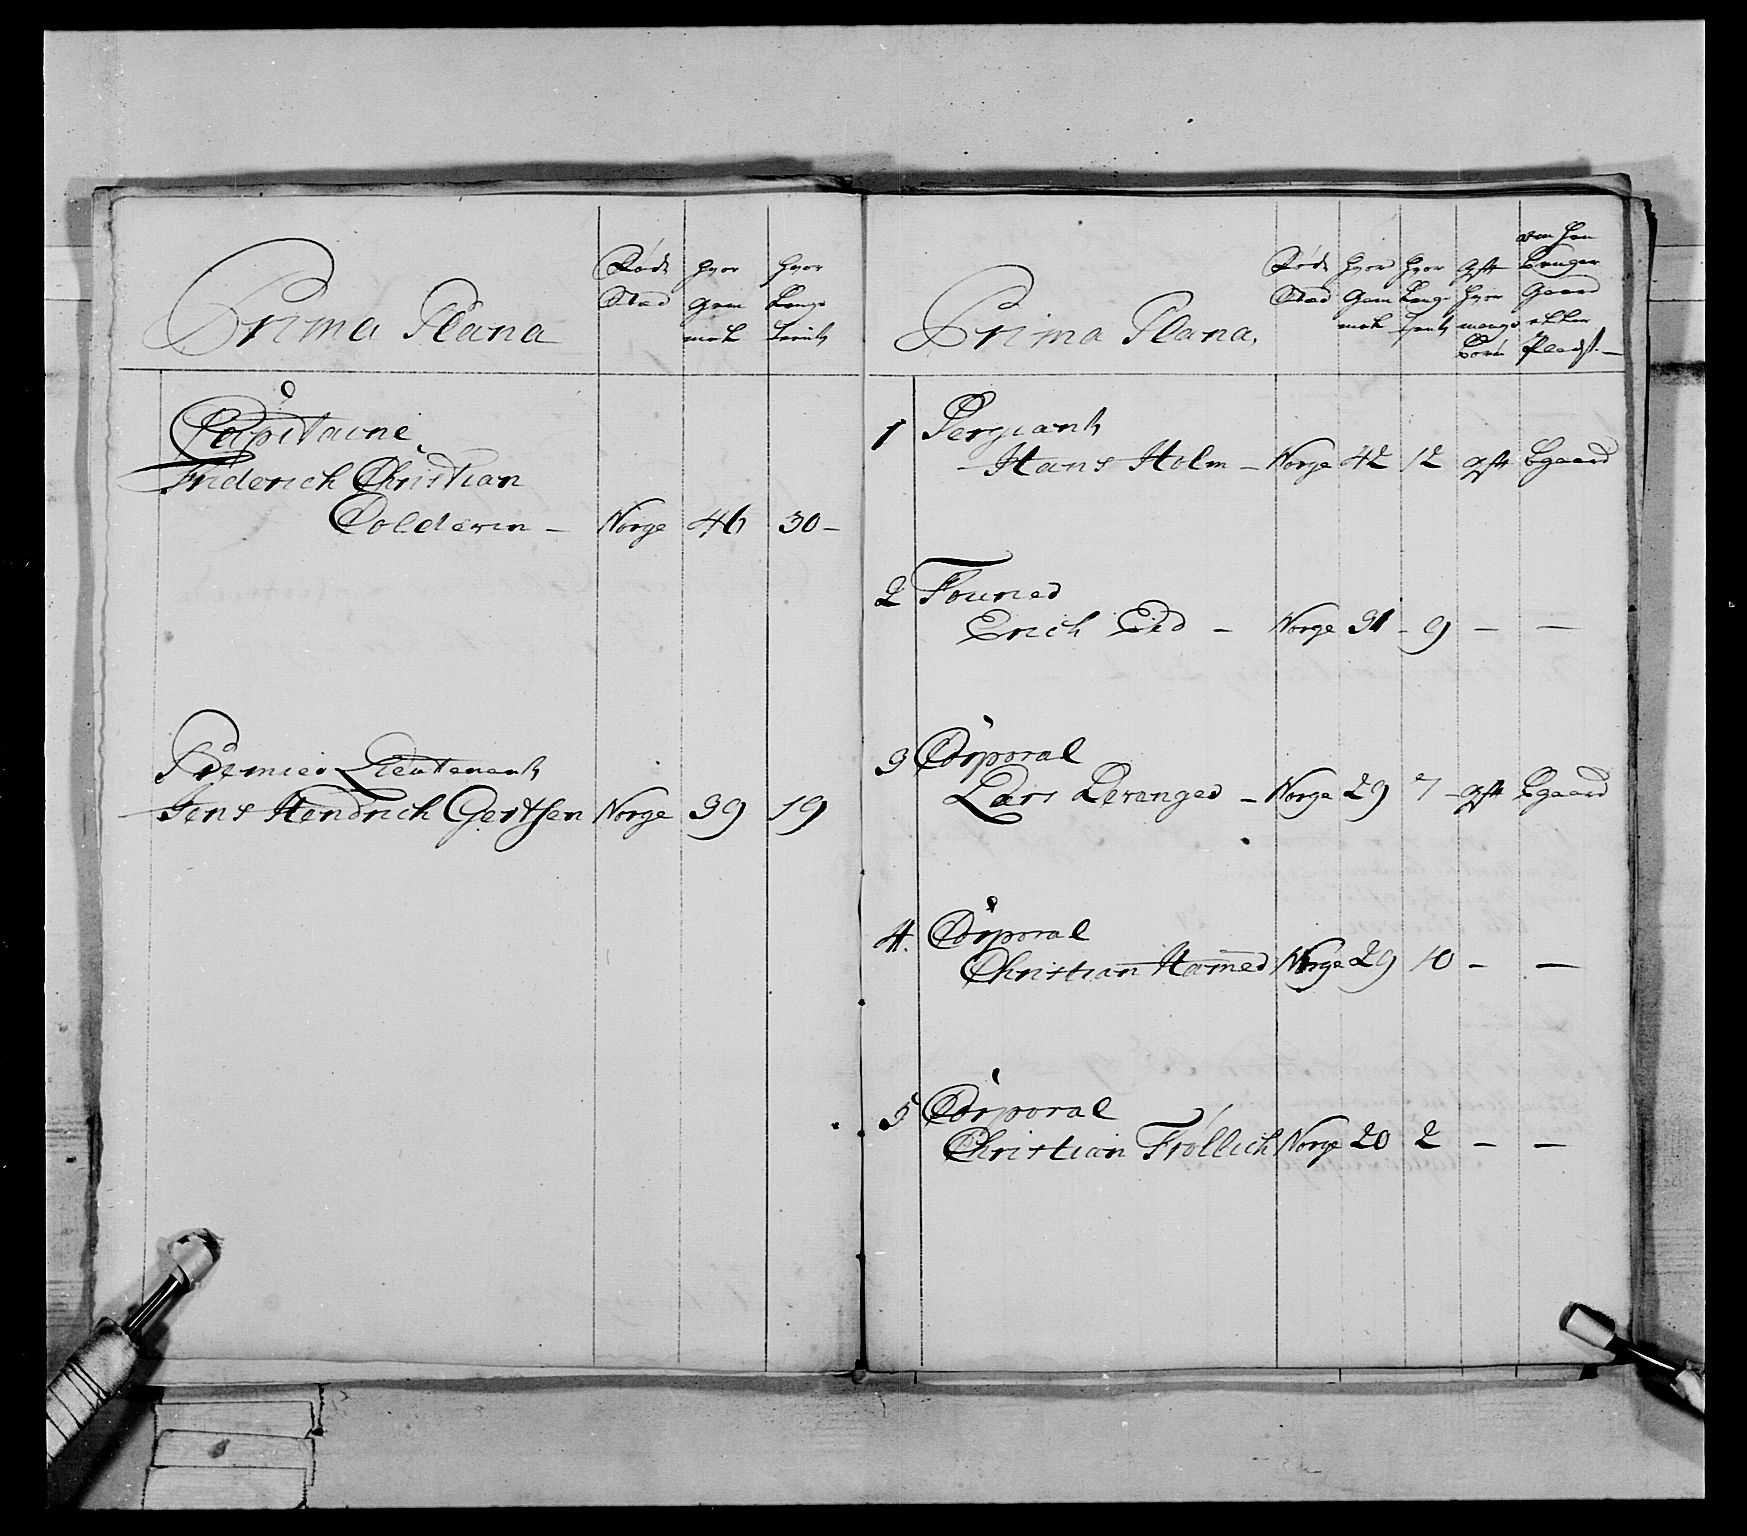 Prima Plana
Föde Stad
hvor gam melt
hvor Lenge tient
Capitaine
Friderich Christian
Colderin - Norge 46 30 -
Premier Lieutenant
Jens Hendrich Gertsen Norge 39 19
Prima Plana.
Föde Stad
hvor Gam melt
hvor Lenge tient
gift hvor mange börn
om han bruger Gaard eller Pladst. -
1 Sergiant
- Hans Holm - Norge 42 12 gift Bgaard
2 Foured
Erich Eed - Norge 31 - 9 - -
3 Corporal
Lars Leranged - Norge 29 7 - gift Bgaard
4. Corporal
Christian Hamed Norge 29 10 - -
5 Corporal
Christian Fröllich Norge 20 2 - -